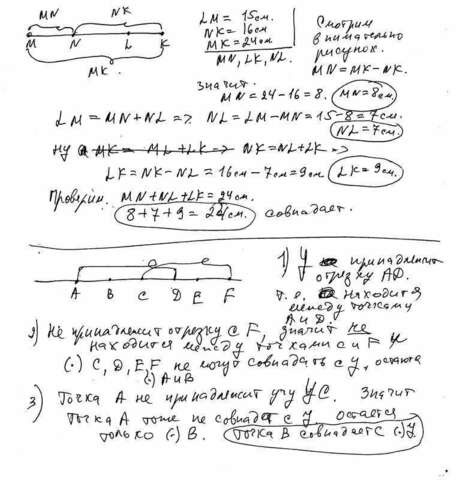 MN NK
M N L K
MK
LM = 15см.
NK = 16см
MK = 24см
MN, LK, NL
Смотрим
внимательно
рисунок.
MN = MK - NK.
Значит
MN = 24 - 16 = 8. MN = 8см
LM = MN + NL => NL = LM - MN = 15 - 8 = 7см.
NL = 7см
ну MK = ML + LK => NK = NL + LK =>
LK = NK - NL = 16см - 7см = 9см LK = 9см.
Проверим. MN + NL + LK = 24см.
8 + 7 + 9 = 24см. совпадает.
A B C D E F
1) У принадлежит
отрезку AD.
т.е. находится
между точками
A и D.
2) Не принадлежит отрезку CF, значит не
находится между точками C и F
(·) C, D, E, F не могут совпадать с У,
(·) A и B
3) Точка A не принадлежит УC. Значит
Точка A тоже не совпадает с У, остается
только (·) B. Точка B совпадает с (·) У.